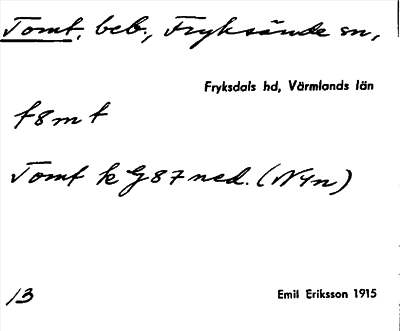 Tomt, beb., Fryksände sn,
Fryksdals hd, Värmlands län
t8mt
Tomt k G87 ned. (N4n)
13
Emil Eriksson 1915